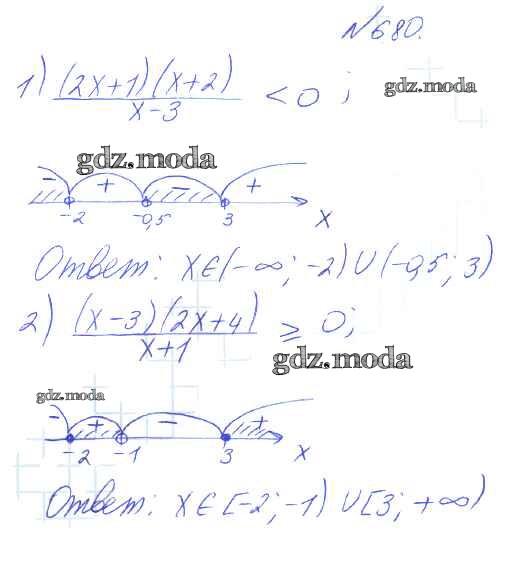 №680.
1) (2x+1)(x+2)/(x-3) < 0;
gdz.moda
gdz.moda
- + - +
-2 -0,5 3 x
Ответ: x∈(-∞; -2)∪(-0,5; 3)
2) (x-3)(2x+4)/(x+1) ≥ 0;
gdz.moda
gdz.moda
- + - +
-2 -1 3 x
Ответ: x∈[-2; -1)∪[3; +∞)